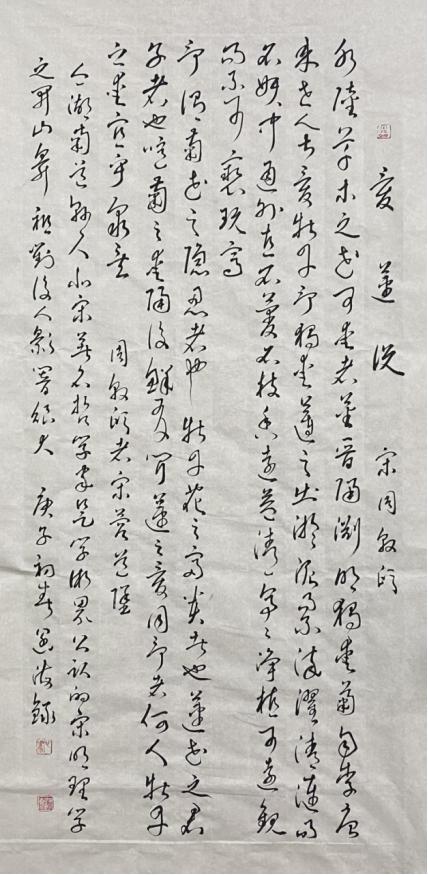 爱莲说 宋周敦颐
水陆草木之花可爱者甚蕃陶渊明独爱菊自李唐
来世人甚爱牡丹予独爱莲之出淤泥而不染濯清涟而
不妖中通外直不蔓不枝香远益清亭亭净植可远观
而不可亵玩焉
予谓菊花之隐逸者也牡丹花之富贵者也莲花之君
子者也噫菊之爱陶后鲜有闻莲之爱同予者何人牡丹
之爱宜乎众矣 周敦颐者宋营道
人湖南道县人北宋著名哲学家是学术界公认的宋明理学
之开山鼻祖对后人影响很大 庚子初春